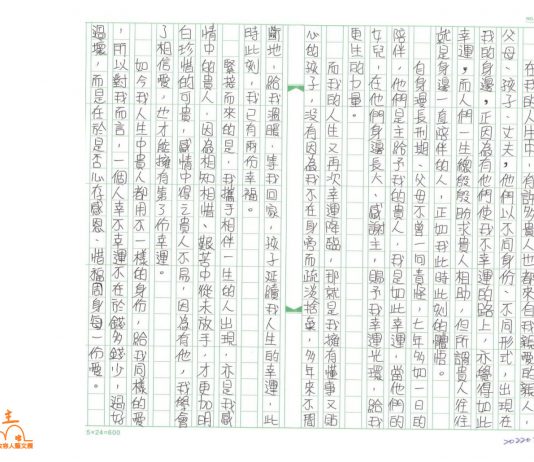 在我的人生中，有許多貴人也都來自我親愛的家人，
父母、孩子、丈夫，他們以不同身份、不同形式，出現在
我的身邊，正因為有他們使我不幸運的路上，亦覺得如此
幸運，而人們一生總殷殷盼求貴人相助，但所謂貴人往往
就是身邊一直陪伴的人，正如我此時此刻的體悟。
自身還長刑期，父母不曾一句責怪，七年多如一日的
陪伴，他們是主給予我的貴人，我是如此幸運，當他們的
女兒，在他們身邊長大，感謝主，賜予我幸運光環，給我
更生的力量。
而我的人生又再次幸運降臨，那就是我擁有懂事又貼
心的孩子，沒有因為我不在身旁而疏淡捨棄，多年來不間
斷地，給我溫暖，等我回家，孩子延續我人生的幸運，此
時此刻，我已有兩份幸福。
緊接而來的是，我攜手相伴一生的人出現，亦是我感
情中的貴人，因為相知相惜、艱苦中從未放手，才更加明
白珍惜的可貴，感情中得之貴人不易，因為有他，我學會
了相信愛，也才能擁有第三份幸運。
如今我人生中貴人都用不一樣的身份，給我同樣的愛
，所以對我而言，一個人幸不幸運不在於錢多錢少，過好
過壞，而是在於是否心存感恩、惜福周身每一份愛。
5×24=600